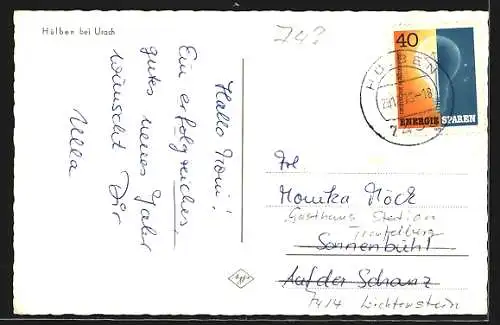 Hülben bei Urach
Hallo Moni!
Ein erfolgreiches,
gutes neues Jahr
wünscht Dir
Ulla
40
ENERGIE SPAREN
HÜLBEN
-18
Frl.
Monika Möck
Gasthaus Station
Traifelberg
Sonnenbühl
Auf der Schanz
7414 Lichtenstein
Agfa